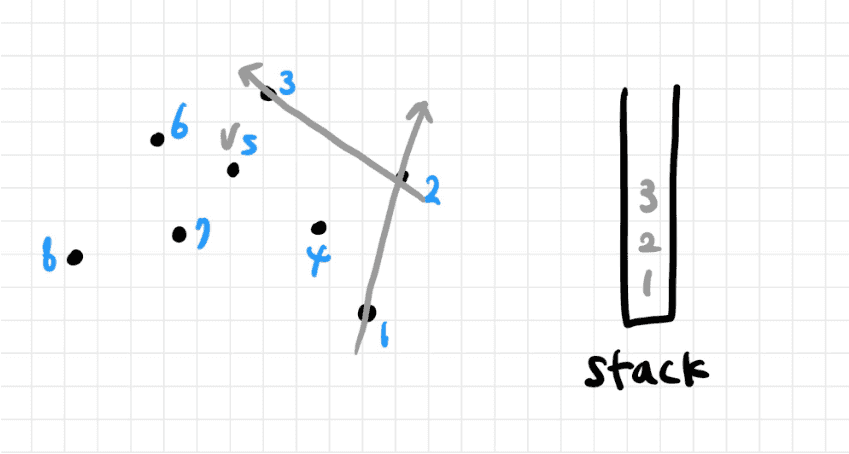 3
6
✓ 5
2
7
4
8
1
3
2
1
stack